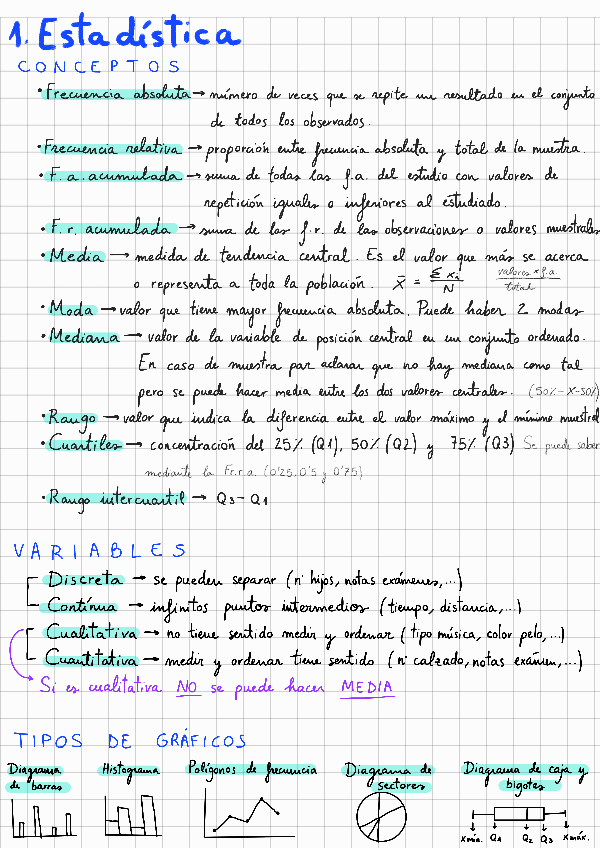 1. Estadística
CONCEPTOS
· Frecuencia absoluta → número de veces que se repite un resultado en el conjunto
de todos los observados.
· Frecuencia relativa → proporción entre frecuencia absoluta y total de la muestra.
· F. a. acumulada → suma de todas las f.a. del estudio con valores de
repetición iguales o inferiores al estudiado.
· F. r. acumulada → suma de las f.r. de las observaciones o valores muestrales
· Media → medida de tendencia central. Es el valor que más se acerca
o representa a toda la población. X̄ = Σ xi / N valores × f.a. / total
· Moda → valor que tiene mayor frecuencia absoluta. Puede haber 2 modas
· Mediana → valor de la variable de posición central en un conjunto ordenado.
En caso de muestra par aclarar que no hay mediana como tal
pero se puede hacer media entre los dos valores centrales. (50%-X-50%)
· Rango → valor que indica la diferencia entre el valor máximo y el mínimo muestral
· Cuartiles → concentración del 25% (Q1), 50% (Q2) y 75% (Q3) Se puede saber
mediante la Fr.r.a. (0'25, 0'5 y 0'75)
· Rango intercuartil → Q3 - Q1
VARIABLES
Discreta → se pueden separar (nº hijos, notas exámenes,...)
Contínua → infinitos puntos intermedios (tiempo, distancia,...)
Cualitativa → no tiene sentido medir y ordenar (tipo música, color pelo,...)
Cuantitativa → medir y ordenar tiene sentido (nº calzado, notas exámen,...)
Si es cualitativa NO se puede hacer MEDIA
TIPOS DE GRÁFICOS
Diagrama de barras
Histograma
Polígonos de frecuencia
Diagrama de sectores
Diagrama de caja y bigotes
Xmín. Q1 Q2 Q3 Xmáx.